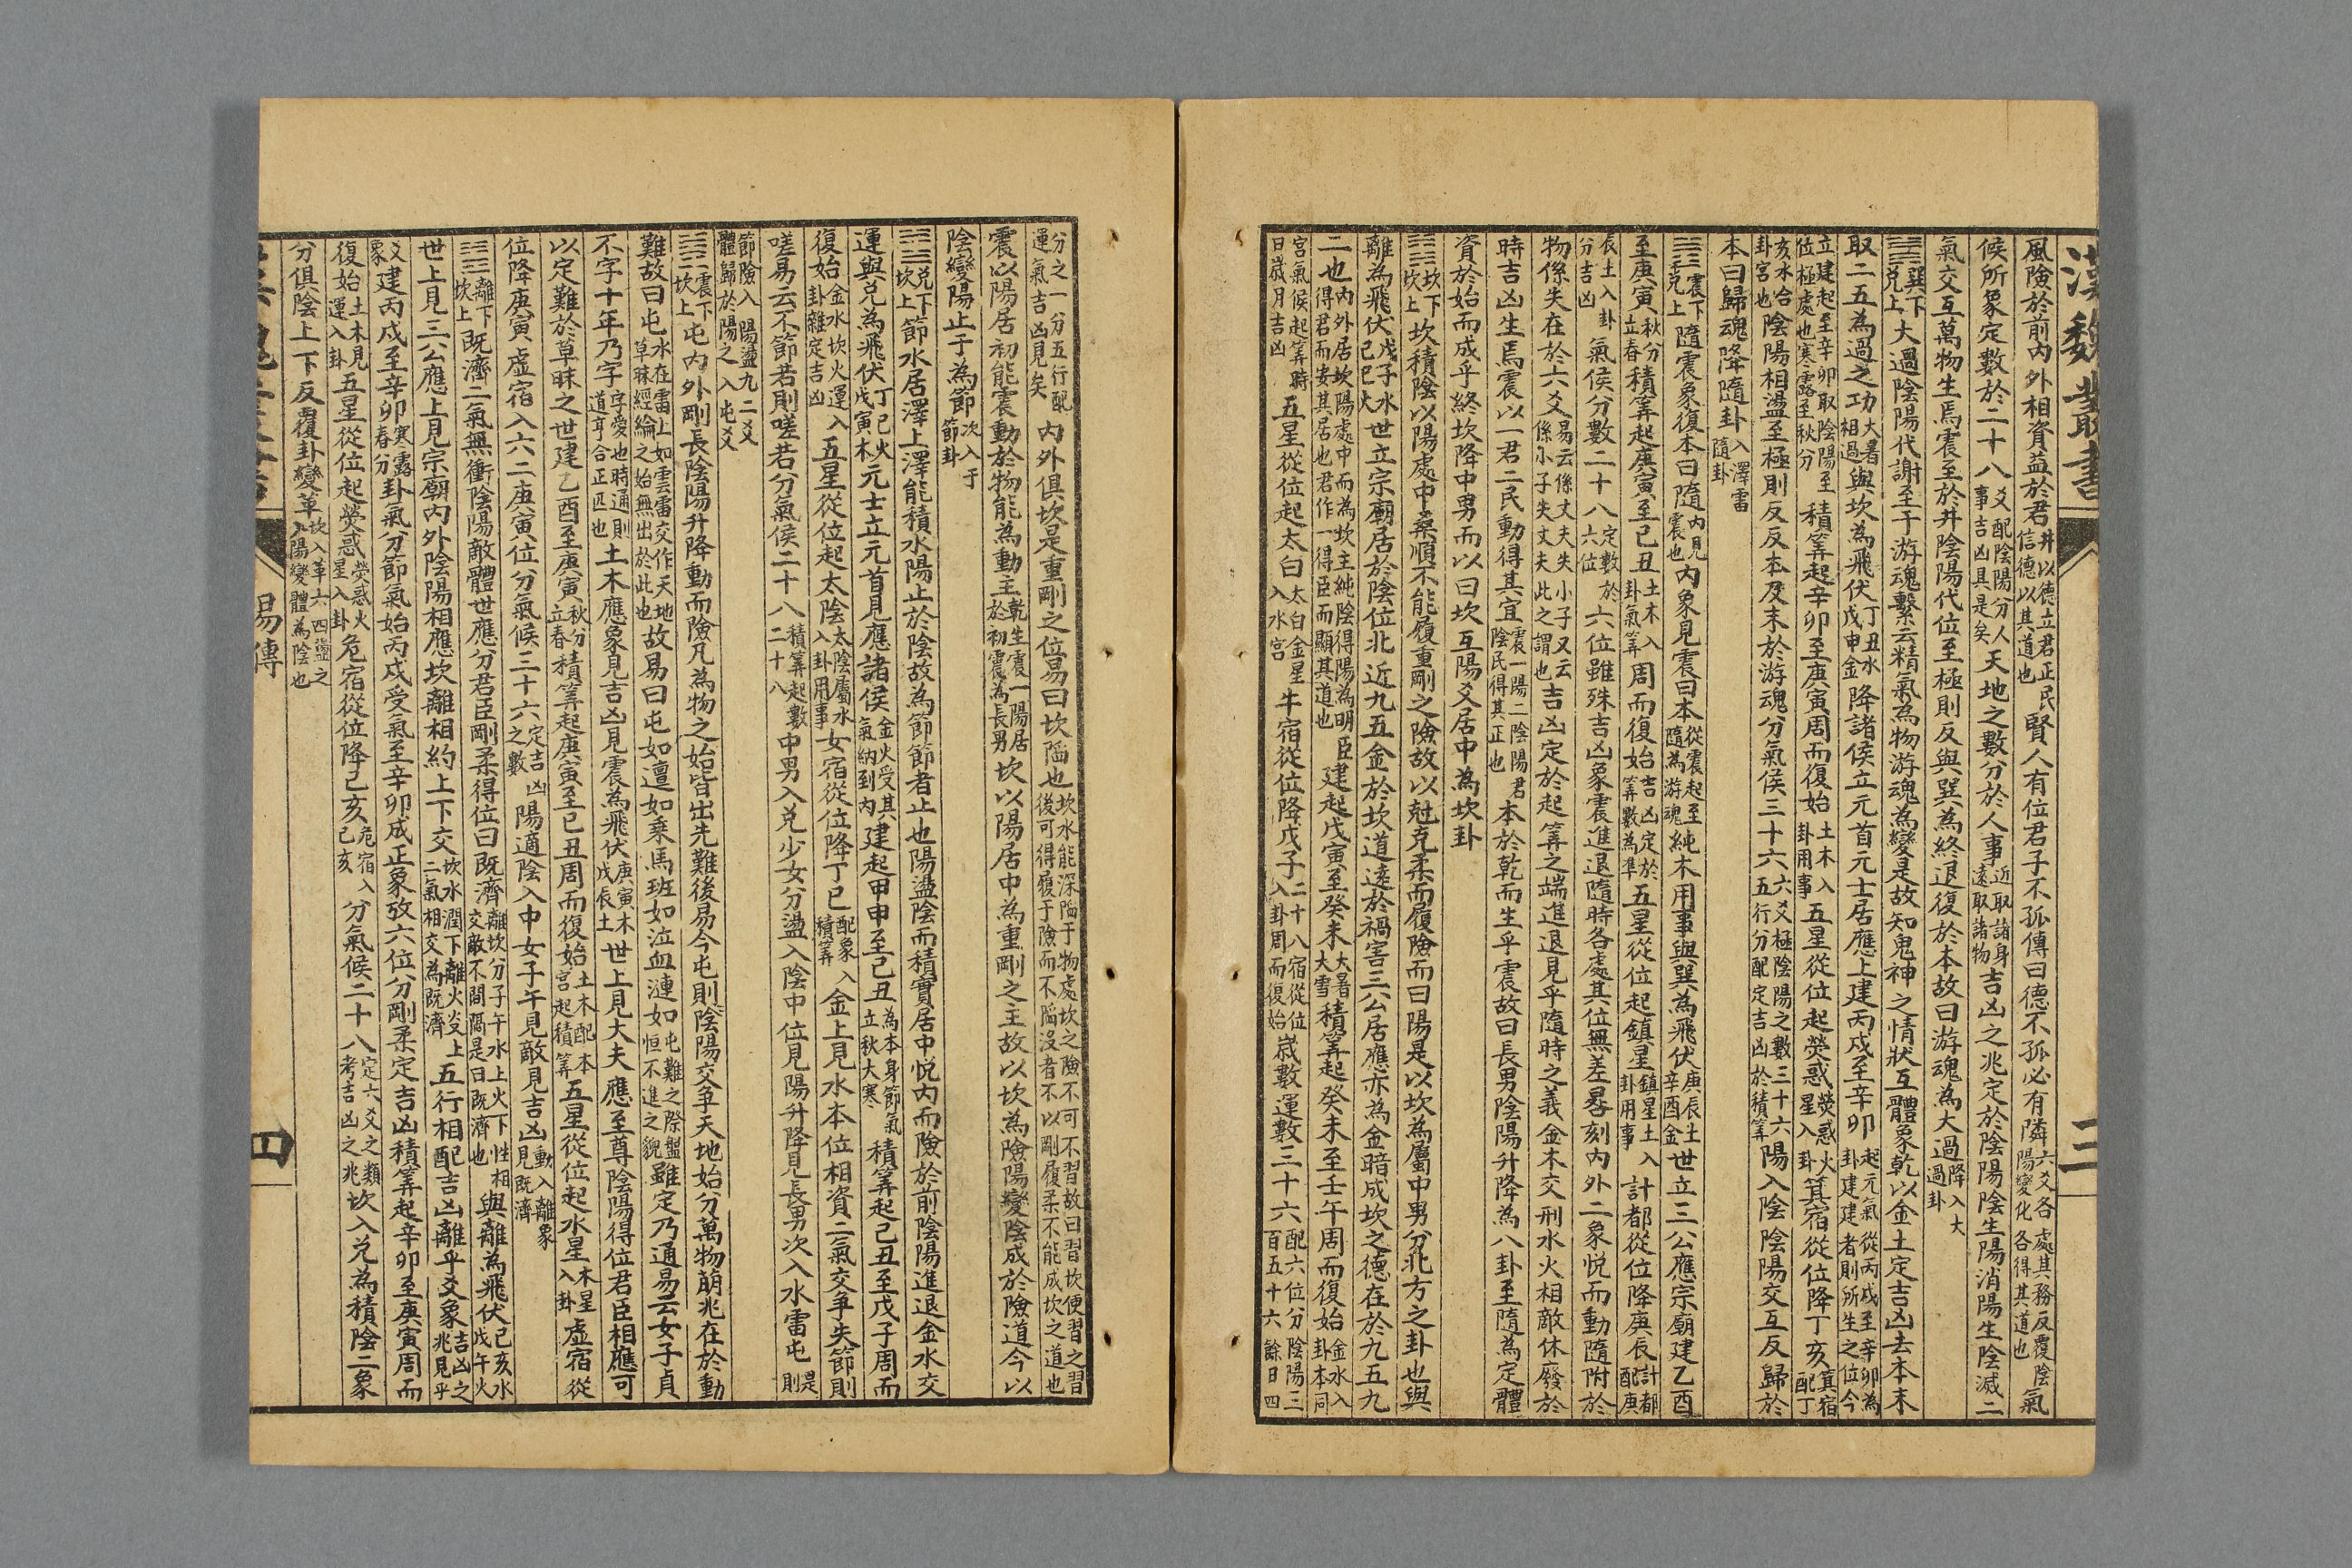 漢魏叢書 三
風險於前內外相資益於君井以德立君正民信德以其道也賢人有位君子不孤傳曰德不孤必有隣六爻各處其務反覆陰陽變化各得其道也氣
候所象定數於二十八爻配陰陽分人事吉凶具是矣天地之數分於人事近取諸身遠取諸物吉凶之兆定於陰陽陰生陽消陽生陰滅二
氣交互萬物生焉震至於井陰陽代位至極則反與巽為終退復於本故曰游魂為大過降入大過卦
䷛巽下兌上大過陰陽代謝至于游魂繫云精氣為物游魂為變是故知鬼神之情狀互體象乾以金土定吉凶去本末
取二五為過之功大者相過與坎為飛伏丁丑水戊申金降諸侯立元首元士居應上建丙戌至辛卯起元氣從丙戌至辛卯為卦建建者則所生之位今
立建起至辛卯取陰陽至位極處也寒露至秋分積筭起辛卯至庚寅周而復始土木入卦用事五星從位起熒惑熒惑火星入卦箕宿從位降丁亥箕宿配丁
亥水合卦宮也陰陽相盪至極則反反本及末於游魂分氣侯三十六六爻極陰陽之數三十六五行分配定吉凶於積筭陽入陰陰陽交互反歸於
本曰歸魂降隨卦入澤雷隨卦
䷐震下兌上隨震象復本曰隨內見震也內象見震曰本從震起至隨為游魂純木用事與巽為飛伏庚辰土辛酉金世立三公應宗廟建乙酉
至庚寅秋分立春積筭起庚寅至己丑土木入卦氣筭周而復始吉凶定於筭數為準五星從位起鎮星鎮星土入卦用事計都從位降庚辰計都配庚
辰土入卦分吉凶氣侯分數二十八定數於六位六位雖殊吉凶象震進退隨時各處其位無差晷刻內外二象悅而動隨附於
物係失在於六爻易云係丈夫失小子又云係小子失丈夫此之謂也吉凶定於起筭之端進退見乎隨時之義金木交刑水火相敵休廢於
時吉凶生焉震以一君二民動得其宜震一陽二陰陽君陰民得其正也本於乾而生乎震故曰長男陰陽升降為八卦至隨為定體
資於始而成乎終坎降中男而以曰坎互陽爻居中為坎卦
䷜坎下坎上坎積陰以陽處中柔順不能履重剛之險故以剋克柔而履險而曰陽是以坎為屬中男分北方之卦也與
離為飛伏戊子水己巳火世立宗廟居於陰位北近九五金於坎道遠於禍害三公居應亦為金暗成坎之德在於九五九
二也內外居坎陽處中而為坎主純陰得陽為明臣得君而安其居也君作一得臣而顯其道也建起戊寅至癸未大暑大雪積筭起癸未至壬午周而復始金水入卦本同
宮氣候起筭時日歲月吉凶五星從位起太白太白金星入水宮牛宿從位降戊子二十八宿從位入卦周而復始歲數運數三十六配六位分陰陽三百五十六餘日四
分之一分五行配運氣吉凶見矣內外俱坎是重剛之位易曰坎䧟也坎水能深陷于物處坎之險不可不習故曰習坎便習之習後可得履于險而不䧟沒者不以剛履柔不能成坎之道也
震以陽居初能震動於物能為動主乾生震一陽居於初震為長男坎以陽居中為重剛之主故以坎為險陽變陰成於險道今以
陰變陽止于為節次入于節卦
䷻兌下坎上節水居澤上澤能積水陽止於陰故為節節者止也陽盪陰而積實居中悅內而險於前陰陽進退金水交
運與兌為飛伏丁巳火戊寅木元士立元首見應諸侯金火受其氣納到內建起甲申至己丑為本身節氣立秋大寒積筭起己丑至戊子周而
復始金水坎火運入卦雜定吉凶五星從位起太陰太陰屬水入卦用事女宿從位降丁巳配象入積筭金上見水本位相資二氣交爭失節則
嗟易云不節若則嗟若分氣侯二十八積筭起數二十八中男入兌少女分盪入陰中位見陽升降見長男次入水雷屯是則
節險入陽盪九二爻體歸於陽之入屯爻
䷂震下坎上屯內外剛長陰陽升降動而險凡為物之始皆出先難後易今屯則陰陽交爭天地始分萬物萠兆在於動
難故曰屯水在雷上如雲雷交作天地草昧經綸之始無出於此也故易曰屯如邅如乘馬班如泣血漣如屯難之際盤恒不進之貌雖定乃通易云女子貞
不字十年乃字字愛也時通則道亨合正匹也土木應象見吉凶見震為飛伏庚寅木戊辰土世上見大夫應至尊陰陽得位君臣相應可
以定難於草昧之世建乙酉至庚寅秋分立春積筭起庚寅至己丑周而復始土木配本宮起積筭五星從位起水星木星入卦虛宿從
位降庚寅虛宿入六二庚寅位分氣候三十六定吉凶之數陽適陰入中女子午見敵見吉凶動入離象見既濟
䷾離下坎上既濟二氣無衝陰陽敵體世應分君臣剛柔得位曰既濟離坎分子午水上火下性相交敵不間隔是曰既濟也與離為飛伏己亥水戊午火
世上見三公應上見宗廟內外陰陽相應坎離相約上下交坎水潤下離火炎上二氣相交為既濟五行相配吉凶離乎爻象吉凶之兆見乎
爻象建丙戌至辛卯寒露春分卦氣分節氣始丙戌受氣至辛卯成正象攷六位分剛柔定吉凶積筭起辛卯至庚寅周而
復始土木見運入卦五星從位起熒惑熒惑火星入卦危宿從位降己亥危宿入己亥分氣候二十八定六爻之類考吉凶之兆坎入兌為積陰二象
分俱陰上下反覆卦變革坎入革六四盪之入陽變體為陰也
易傳 四